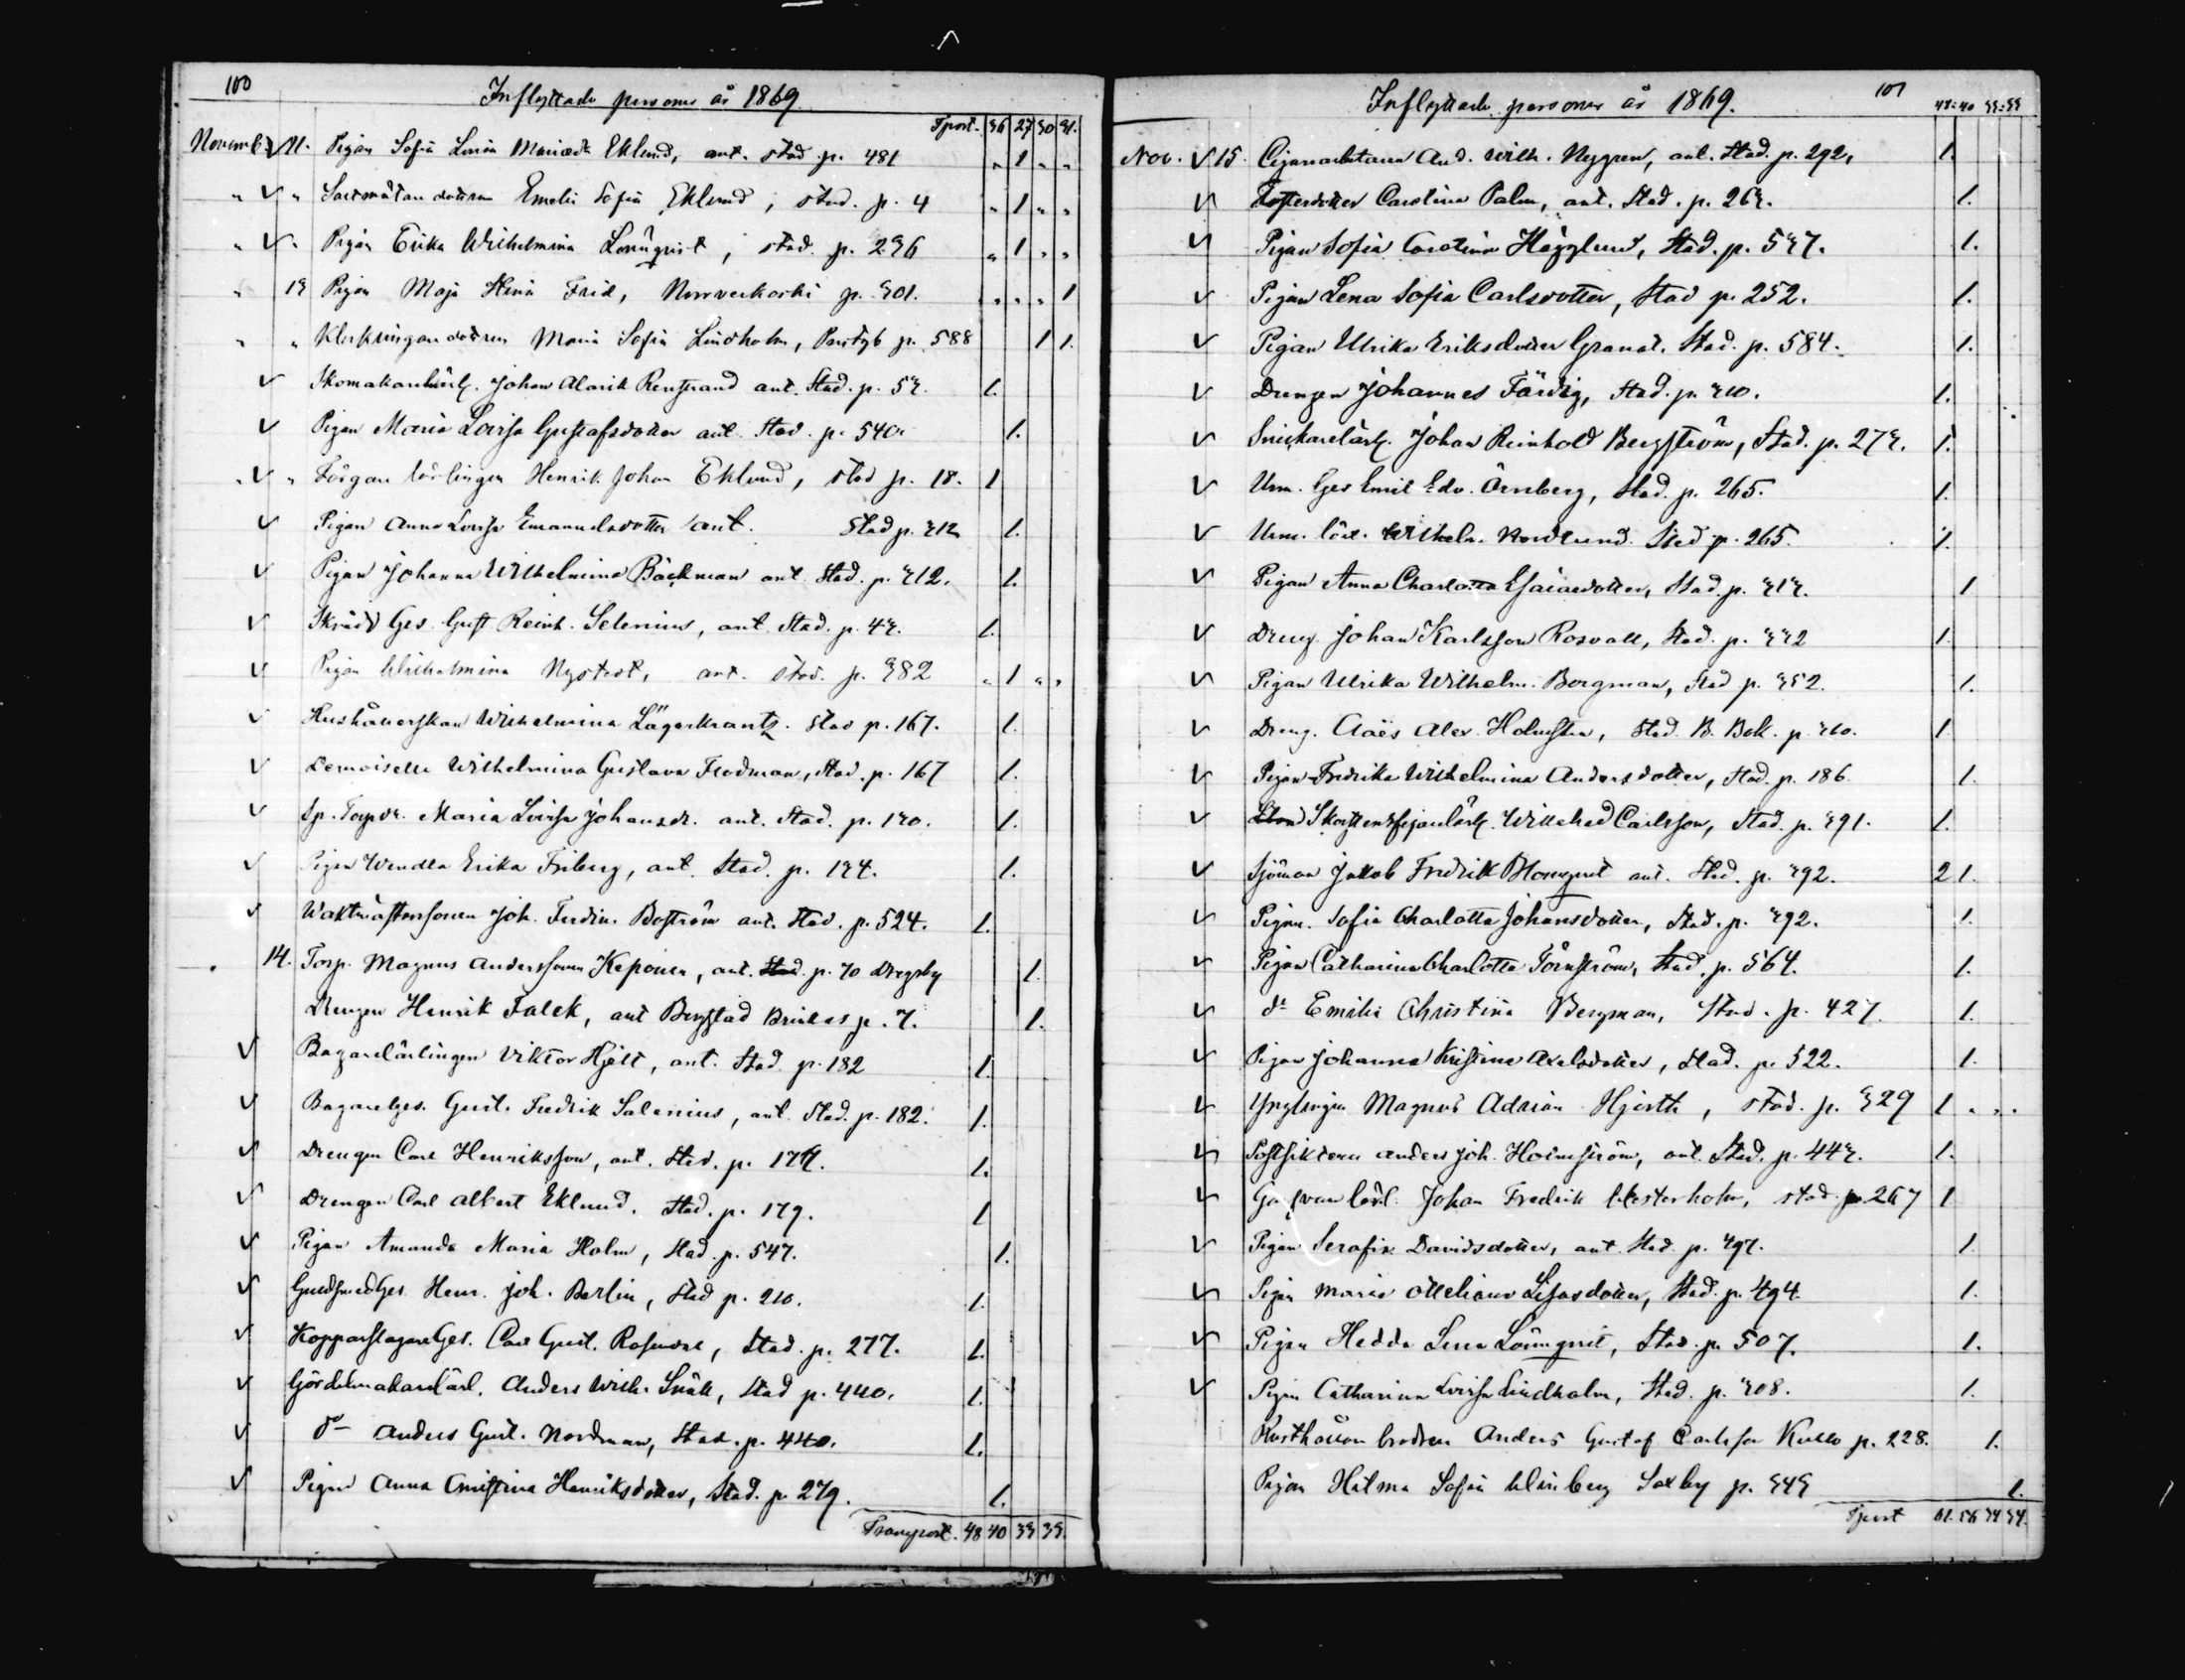 100
Inflyttade personer år 1869
Tport. 36 27 30 31.
Novemb. 11. Pigan Sofia Lovisa Mariædr Eklund, ant. stad. p. 481 " 1 " "
" " dottren Emelie Sofia Eklund, stad. p. 4 " 1 " "
" " Pigan Erika Wilhelmina Lönnqvist, stad. p. 236 " 1 " "
" 13 Pigan Maja Frid, p. 301. " " " 1
" " dottren Maria Sofia Lindholm, p. 588 1 1.
Skomakarelärl. Johan Alarik Renstrand ant. Stad. p. 53. 1.
Pigan Maria Lovisa Gustafsdotter ant. Stad. p. 540. 1.
" " Färgare lärlingen Henrik Johan Eklund, stad p. 18. 1
Pigan Anna Lovisa Emanuelsdotter ant. Stad p. 312 1.
Pigan Johanna Wilhelmina Bäckman ant. Stad. p. 312. 1.
Skrädd Ges. Gust. Reinh. Selenius, ant. Stad. p. 43. 1.
Pigan Wilhelmina Nystedt, ant. stad. p. 382 " 1 " "
Hushållerskan Wilhelmina Lägerkrantz. Stad p. 167. 1.
Demoiselle Wilhelmina Gustava Frodman, Stad. p. 167 1.
Sp. Torpdr. Maria Lovisa Johansdr. ant. Stad. p. 130. 1.
Pigan Wendla Erika Friberg, ant. Stad. p. 134. 1.
Waktmästersonen Joh. Ferdin. Boström ant. Stad. p. 524. 1.
14. Torp. Magnus Andersson Keponen, ant. Stad. p. 70 Drägsby 1.
Drengen Henrik Falck, ant. p. 7. 1.
Bagarelärlingen Viktor Hjelt, ant. Stad. p. 182 1.
Bagareges. Gust. Fredrik Salenius, ant. Stad. p. 182. 1.
Drengen Carl Henriksson, ant. Stad. p. 174. 1.
Drengen Carl Albert Eklund. Stad. p. 179. 1
Pigan Amanda Maria Holm, Stad. p. 547. 1.
Guldsmedsges. Henr. Joh. Berlin, Stad p. 210. 1.
KopparslagareGes. Carl Gust. Stad. p. 277. 1.
Gördelmakarelärl. Anders Wilh. Snäll, Stad p. 440. 1.
do Anders Gust. Nordman, Stad. p. 440. 1.
Pigan Anna Christina Henriksdotter, Stad. p. 279. 1.
Transport. 48 40 33 33.
Inflyttade personer år 1869. 101
48: 40 33: 33
Nov. 15. Cigarrarbetaren And. Wilh. Nygren, ant. Stad. p. 292, 1.
Fosterdotter Carolina Palm, ant. Stad. p. 263. 1.
Pigan Sofia Carolina Hägglund, Stad. p. 537. 1.
Pigan Lena Sofia Carlsdotter, Stad p. 252. 1.
Pigan Ulrika Eriksdotter Granat. Stad. p. 584. 1.
Drengen Johannes Färdig, Stad. p. 310. 1.
Snickarelärl. Johan Reinhold Bergström, Stad. p. 273. 1.
Urm. Ges Emil Edv. Örnberg, Stad. p. 265. 1.
Urm. lärl. Wilhelm Nordlund. Stad p. 265. 1.
Pigan Anna Charlotta Esaiædotter, Stad. p. 313. 1
Dreng. Johan Karlsson Rosvall, Stad. p. 332 1.
Pigan Ulrika Wilhelm. Bergman, Stad p. 352. 1.
Dreng. Claës Alex. Holmsten, Stad. B. Bok. p. 310. 1
Pigan Fredrika Wilhelmina Andersdotter, Stad. p. 186. 1.
Willehad Carlsson, Stad. p. 391. 1.
Sjöman Jakob Fredrik Blomqvist ant. Stad. p. 392. 2 1.
Pigan. Sofia Charlotta Johansdotter, Stad. p. 392. 1.
Pigan Catharina Charlotta Törnström, Stad. p. 564. 1.
do Emilie Christina Bergman, Stad. p. 427. 1.
Pigan Johanna Kristina Axelsdotter, Stad. p. 522. 1.
Ynglingen Magnus Adrian Hjorth, stad. p. 329 1 " " "
Anders Joh. Holmström, ant. Stad. p. 443. 1.
Johan Fredrik Westerholm, stad. p. 267 1
Pigan Serafin. Davidsdotter, ant. Stad. p. 497. 1.
Pigan Maria Ottiliana Stad. p. 494. 1.
Pigan Hedda Lena Lönnqvist, Stad. p. 507. 1.
Pigan Catharina Lovisa Lindholm, Stad. p. 308. 1.
Rusthållare brodren Anders Gustaf Carlsson Kullo p. 228. 1.
Pigan Hilma Sofia Winberg Saxby p. 343 1.
Tport 61. 56 34 34.